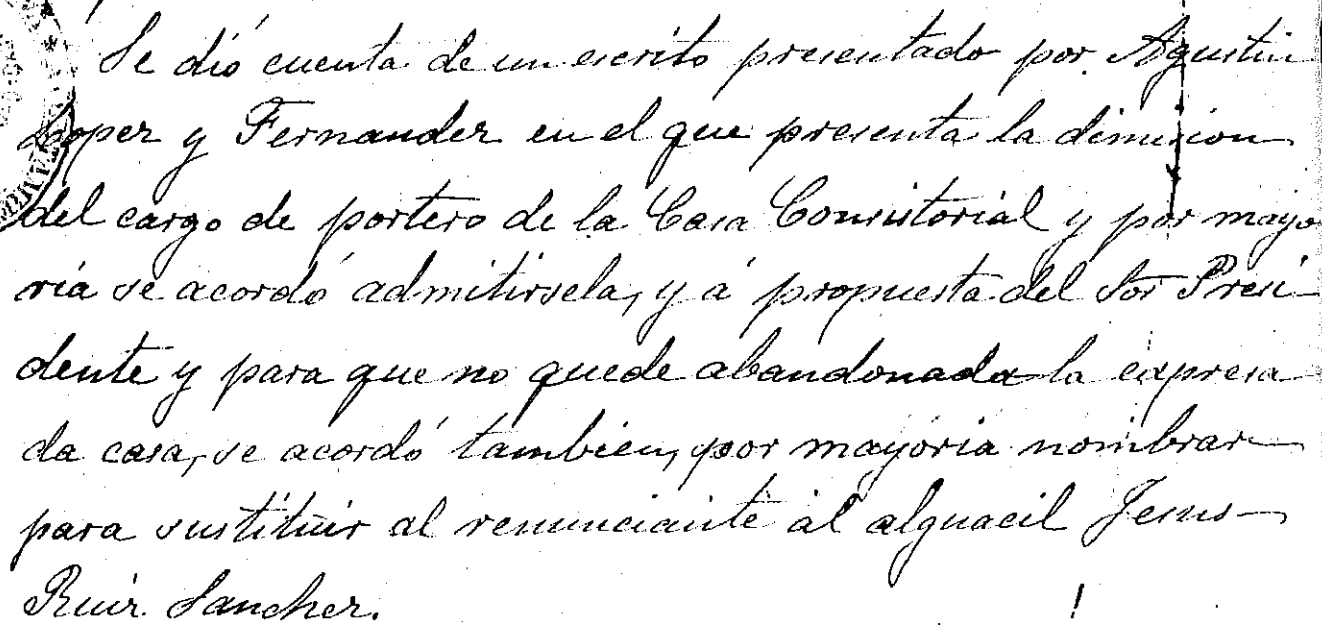 Se dió cuenta de un escrito presentado por Agustin
Lopez y Fernandez en el que presenta la dimision
del cargo de portero de la Casa Consistorial y por mayo
ría se acordó admitirsela, y á propuesta del Sor Presi-
dente y para que no quede abandonada la expresa
da casa, se acordó tambien, por mayoria nombrar
para sustituir al renunciante al alguacil Jesus
Ruiz Sanchez.